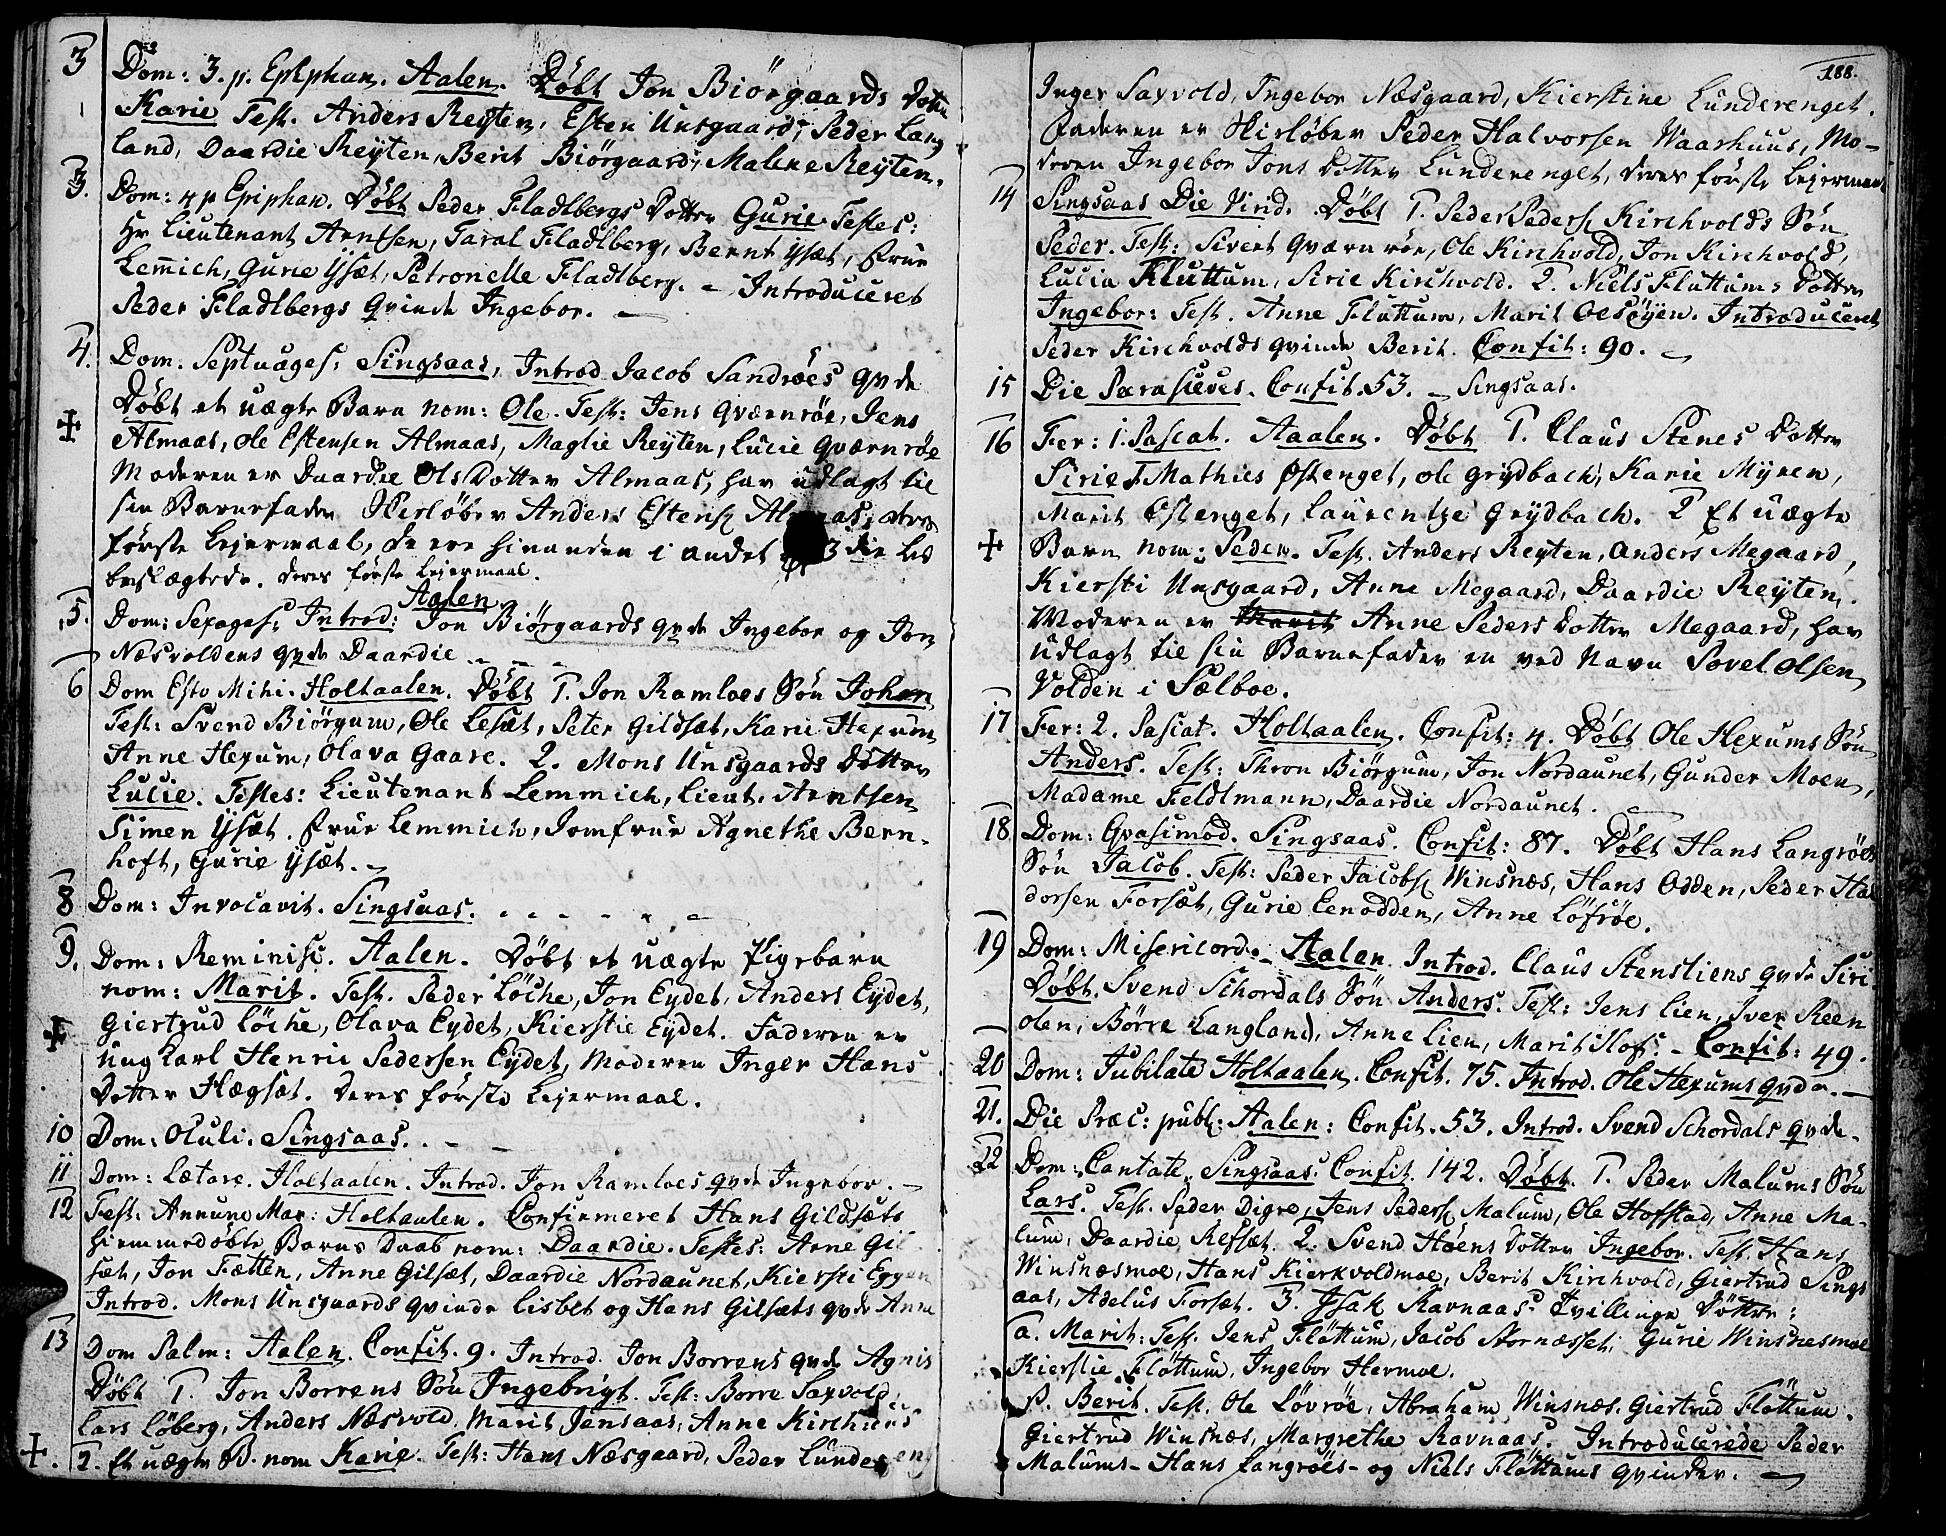 3 Dom: 3. p. Epiphan. Aalen. Døbt Jon Biörgaards Dotter
Karie Test. Anders Reyten, Esten Unsgaard, Peder Lang
land, Daardie Reyten, Berit Biörgaard, Malene Reyten.
3. Dom: 4 p Epiphan. Døbt Peder Fladlbergs Dotter Gurie Testes:
Hr Lieutenant Arntsen, Taral Fladlberg, Bernt Ysæt, Frue
Lem̄ich, Gurie Ysæt, Petronelle Fladlberg. - Introduceret
Peder Fladlbergs Qvinde Ingebor. -
4. Dom. Septuages: Singsaas, Introd Jacob Sandröes Qvde
Døbt et uægte Barn nom: Ole. Test: Jens Qværnröe, Jens
Almaas, Ole Estensen Almaas, Maglie Reyten, Lucie Qværnröe
Moderen er Daardie Ols Dotter Almaas, har udlagt til
sin Barnefader Skierløber Anders Estens. Almaas, deres
første Lejermaal, de ere hinanden i andet 3die Led
beslægtede. deres første Lejermaal.
Aalen
5. Dom: Sexages: Introd: Jon Biörgaards qvde Ingebor og Jon
Næsvoldens qvde Daardie
6 Dom Esto Mihi. Holtaalen. Døbt 1. Jon Ramloes Søn Johan
Test: Svend Biörgum, Ole Lesæt, Peter Gildsæt, Karie Hexum
Anne Hexum, Olava Gaare. 2. Mons Unsgaards Dotter
Lucie. Testes: Lieutenant Lemmich, Lieut. Arntsen
Simen Ysæt. Frue Lemmich, Jomfrue Agnethe Bern-
hoft, Gurie Ysæt. -
8 Dom: Invocavit. Singsaas.
9. Dom: Reminisc. Aalen. Døbt et uægte Pigebarn
nom: Marit. Test. Peder Löche, Jon Eydet, Anders Eydet,
Giertrud Löche, Olava Eydet, Kierstie Eydet. Faderen er
ung Karl Henric Pedersen Eydet, Moderen Inger Hans
Dotter Hægsæt. Deres første Lejermaal.
10 Dom: Oculi. Singsaas.
11 Dom: Lætare. Holtaalen. Introd. Jon Ramloes qvde Ingebor. -
12 Fest: Annunc Mar: Holtaalen. Confirmeret Hans Gildsæts
hiemmedøbte Barns Daab nom: Daardie. Testes: Arne Gil
sæt, Jon Fætten, Anne Gilsæt, Daardie Nordaunet, Kiersti Eggen
Introd. Mons Unsgaards qvinde Lisbet og Hans Gilsæts qvde Anne
13 Dom Palm: Aalen. Confit. 9. Introd. Jon Borrens qvde Agnis
Døbt 1. Jon Borrens Søn Ingebrigt. Test: Borre Saxvold
Lars Löberg, Anders Næsvold, Marit Jensaas, Anne Kirchuus
2. Et uægte B. nom Karie. Test: Hans Næsgaard, Peder Lundereng
188.
Inger Saxvold, Ingebor Næsgaard, Kierstine Lunderenget.
Faderen er Skierløber Peder Halvorsen Waarhuus, Mo-
deren Ingebor Jons Dotter Lunderenget, deres første Lejermaal
14 Singsaas Die Virid. Døbt 1. Peder Peders. Kirchvolds Søn
Peder. Test: Sivert Qværnröe, Ole Kirchvold, Jon Kirchvold,
Lucia Fluttum, Sirie Kirchvold. 2. Niels Fluttums Dotter
Ingebor: Test. Anne Fluttum, Marit Oesøyen. Introduceret
Peder Kirchvolds qvinde Berit. Confit: 90. -
15 Die Parasceves. Confit. 53. - Singsaas.
16 Fer: 1. Pascat. Aaalen. Døbt 1. Claus Stenes Dotter
Sirie T Mathies Østenget, Ole Grydbach, Karie Myren,
Marit Østenget, Laurentze Grydbach. 2 Et uægte
Barn nom: Peder. Test. Anders Reyten, Anders Megaard,
Kiersti Unsgaard, Anne Megaard, Daardie Reyten.
Moderen er Anne Peders Dotter Megaard, har
udlagt til sin Barnefader en ved Navn Sovel Olsen
Volden i Sælboe.
17 Fer: 2. Pascat. Holtaalen. Confit: 4. Døbt Ole Hexums Søn
Anders. Test: Thron Biörgum, Jon Nordaunet, Gunder Moen,
Madame Feldtmann, Daardie Nordaunet.
18 Dom: Qvasimod. Singsaas. Confit: 87. Døbt Hans Langröes
Søn Jacob. Test: Peder Jacobs. Winsnæs, Hans Odden, Peder Hal
dorsen Forsæt, Gurie Eenodden, Anne Löfröe.
19 Dom: Misericord. Aalen. Introd. Claus Stenstiens qvde Siri
Døbt. Svend Schordals Søn Anders. Test: Jens Lien, Iver Reen
olen, Börre Langland, Anne Lien, Marit Hof. - Confit: 49.
20 Dom: Jubilate Holtaalen. Confit. 75. Introd. Ole Hexums qvde. -
21. Die Præc: publ: Aalen: Confit. 53. Introd. Svend Schordals qvde.
22 Dom: Cantate. Singsaas. Confit. 142. Døbt. 1. Peder Malums Søn
Lars. Test. Peder Digre, Jens Peders. Malum, Ole Hofstad, Anne Ma-
lum, Daardie Refsæt. 2. Svend Høens Dotter Ingebor. Test. Hans
Winsnæsmoe, Hans Kierkvoldmoe, Berit Kirchvold, Giertrud Sings
aas, Adelus Forsæt. 3. Isak Ravnaas Tvillinge Døttre:
a. Marit: Test. Jens Fløttum, Jacob Stornæsset, Gurie Winsnesmoe
Kierstie Fløttum, Ingebor Hermoe.
β. Berit. Test. Ole Lövröe, Abraham Winsnæs. Giertrud Fløttum.
Giertrud Winsnæs, Margrethe Ravnaas. Introducerede Peder
Malums- Hans Langröes- og Niels Fløttums qvinder. -